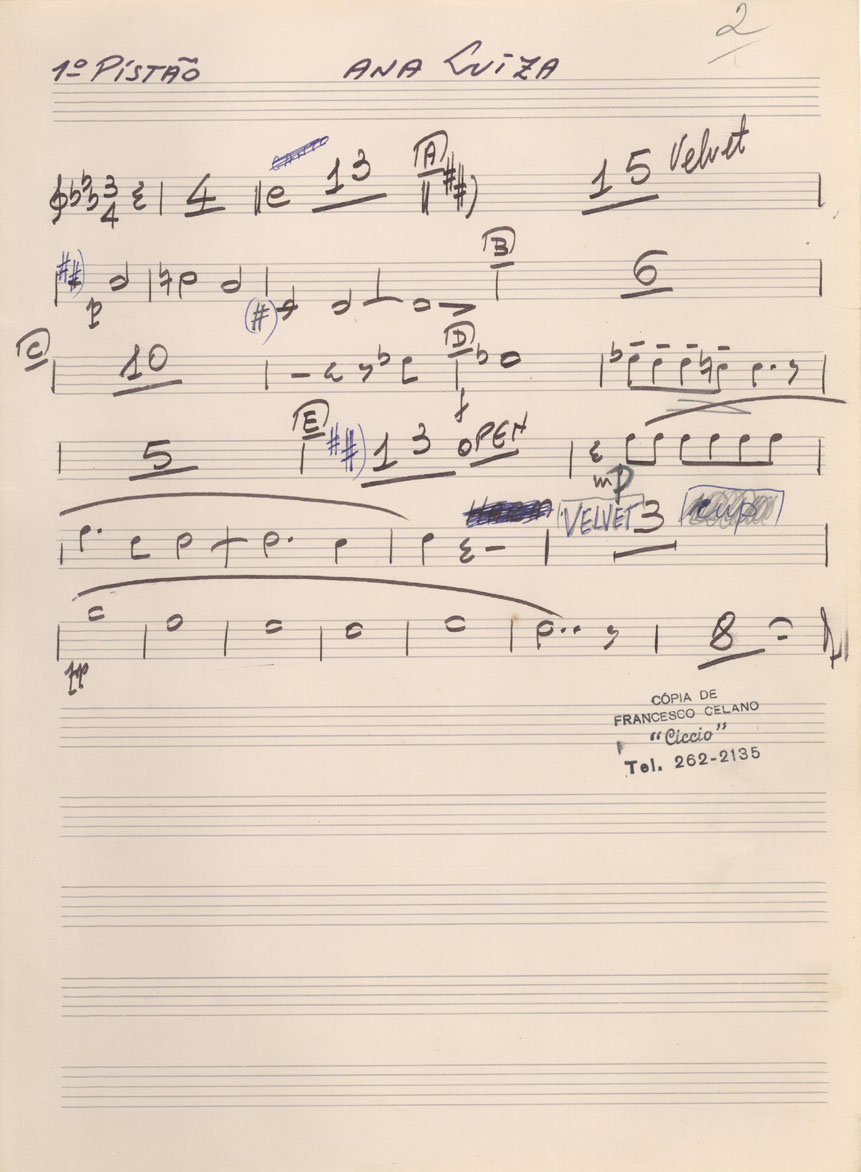 2
1º PISTÃO ANA LUIZA
3 4 4 e 13 A 15 Velvet
p B 6
C 10 D f
5 E 13 OPEN mp
VELVET 3 cup
pp 8
CÓPIA DE
FRANCESCO CELANO
"Ciccio"
Tel. 262-2135